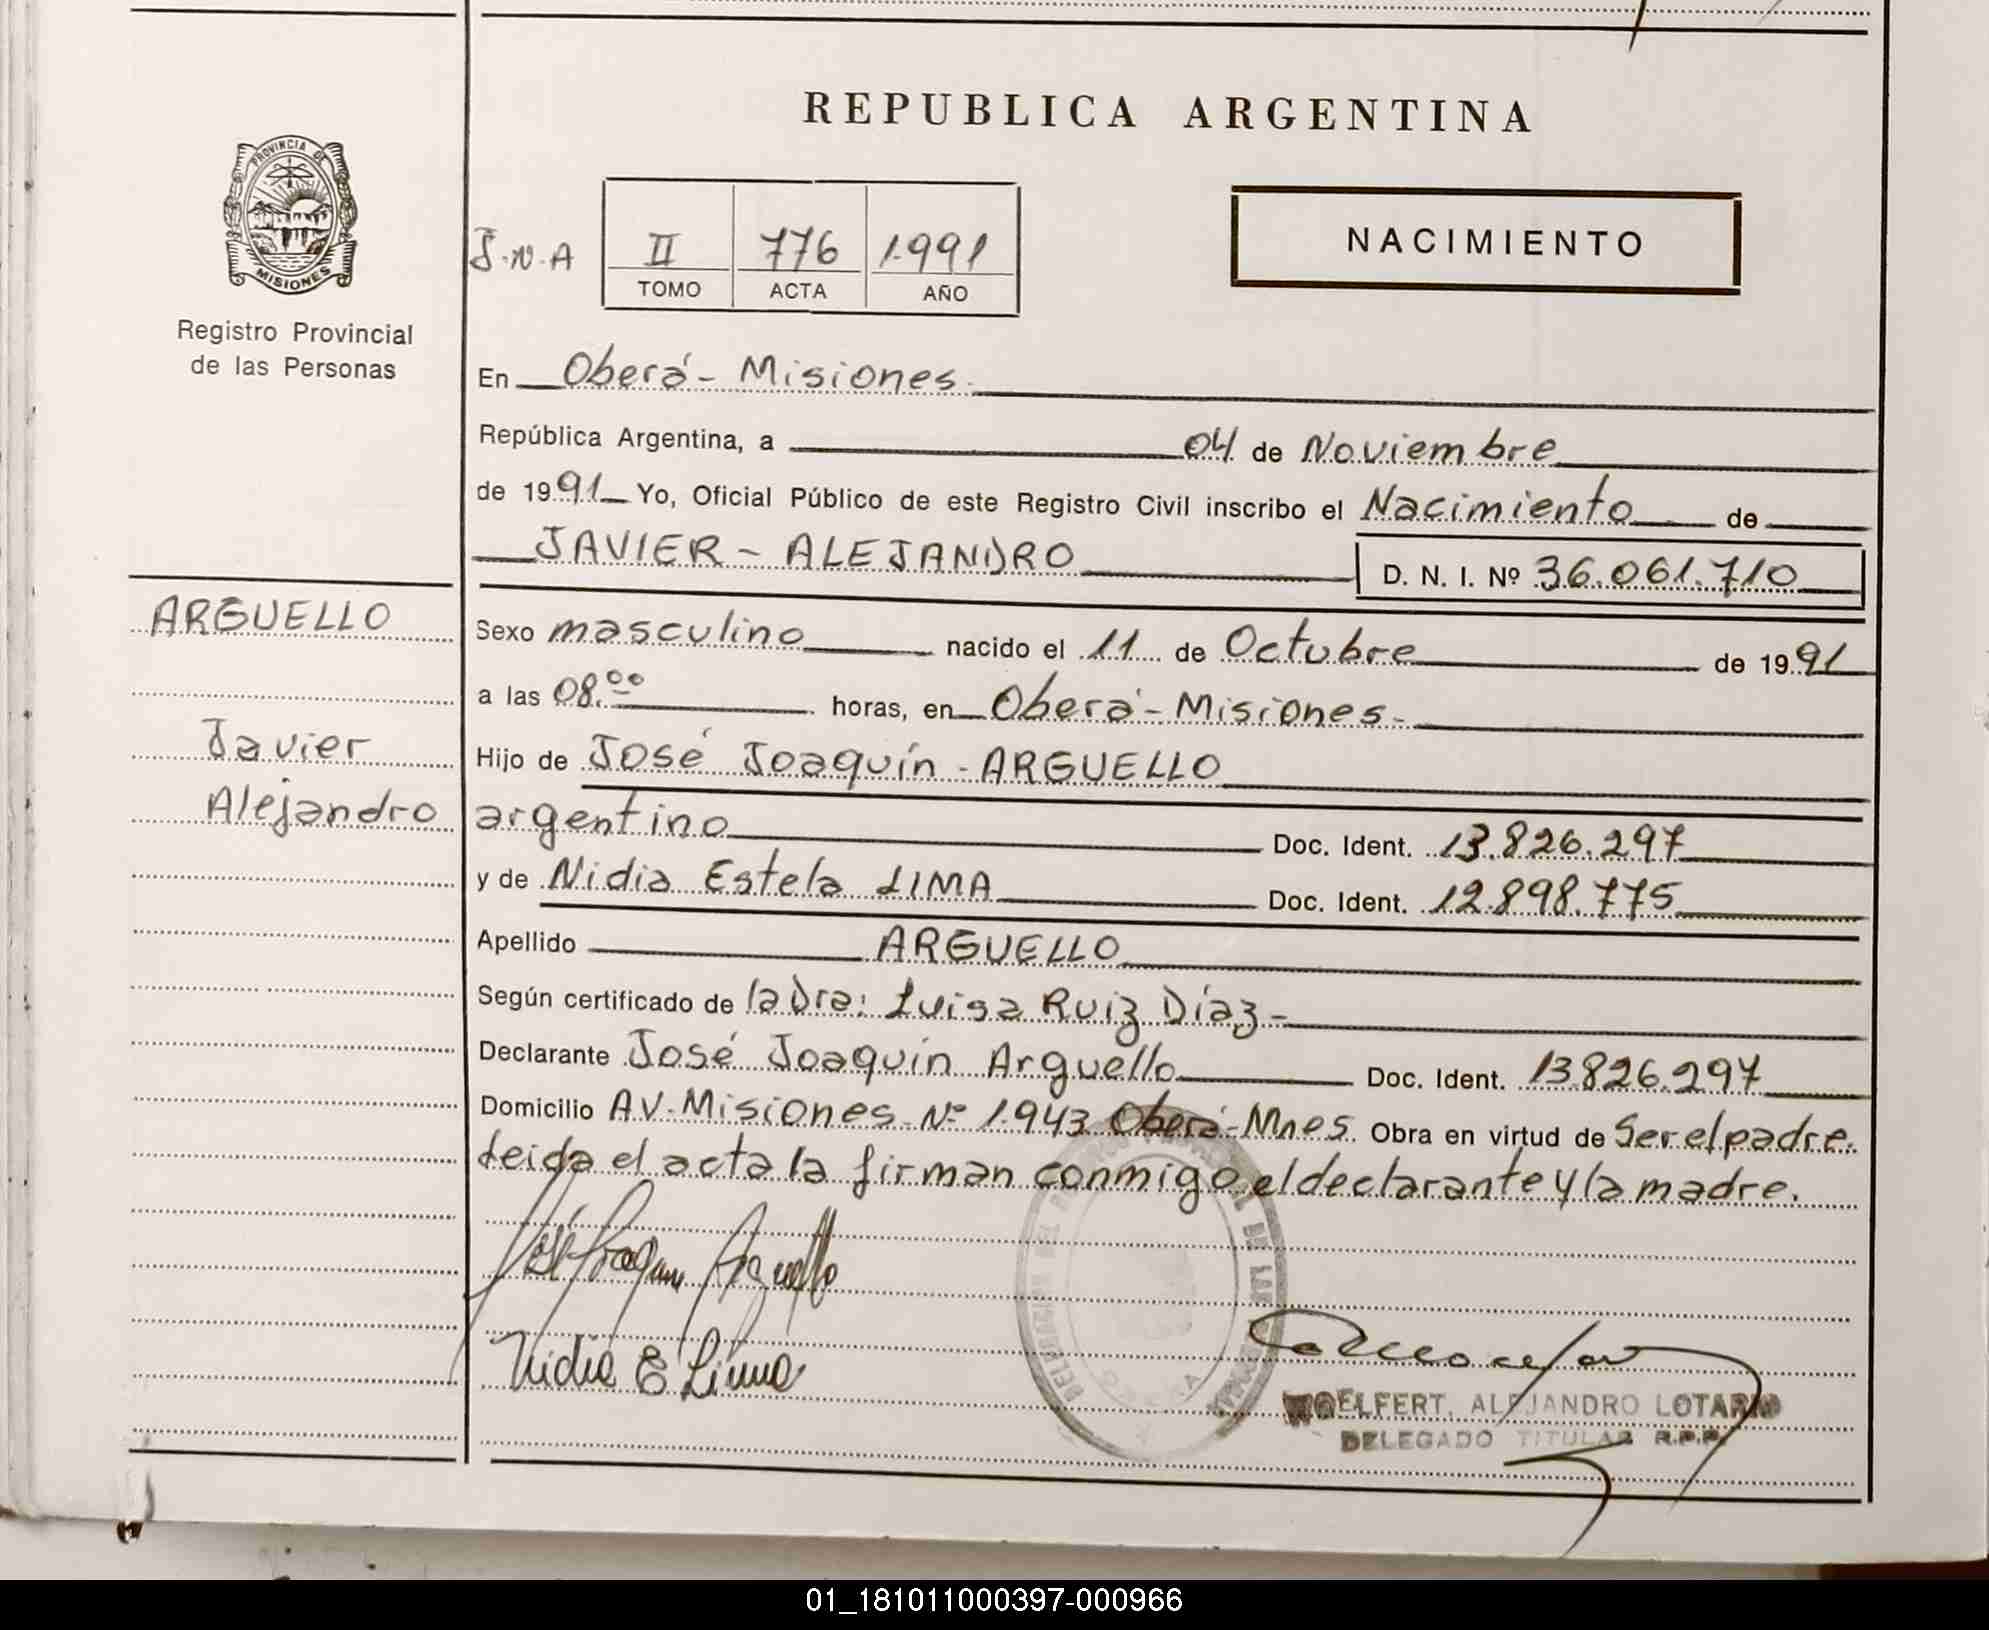 REPUBLICA ARGENTINA
PROVINCIA DE
MISIONES
Registro Provincial
de las Personas
J.N.A
II 776 1.991
TOMO ACTA AÑO
NACIMIENTO
En Oberá - Misiones.
República Argentina, a 04 de Noviembre
de 1991 Yo, Oficial Público de este Registro Civil inscribo el Nacimiento de
JAVIER - ALEJANDRO D. N. I. Nº 36.061.710
ARGUELLO
Javier
Alejandro
Sexo masculino nacido el 11 de Octubre de 1991
a las 08.00 horas, en Oberá - Misiones.
Hijo de José Joaquín - ARGUELLO
argentino Doc. Ident. 13.826.297
y de Nidia Estela LIMA Doc. Ident. 12.898.775
Apellido ARGUELLO
Según certificado de la Dra: Luisa Ruiz Díaz -
Declarante José Joaquín Arguello Doc. Ident. 13826.297
Domicilio AV. Misiones Nº 1.943 Oberá - Mnes. Obra en virtud de Ser el padre.
Leida el acta la firman conmigo el declarante y la madre.
José Joaquin Arguello
Nidia E Lima
WOELFERT, ALEJANDRO LOTARIO
DELEGADO TITULAR R.P.P.
01_181011000397-000966